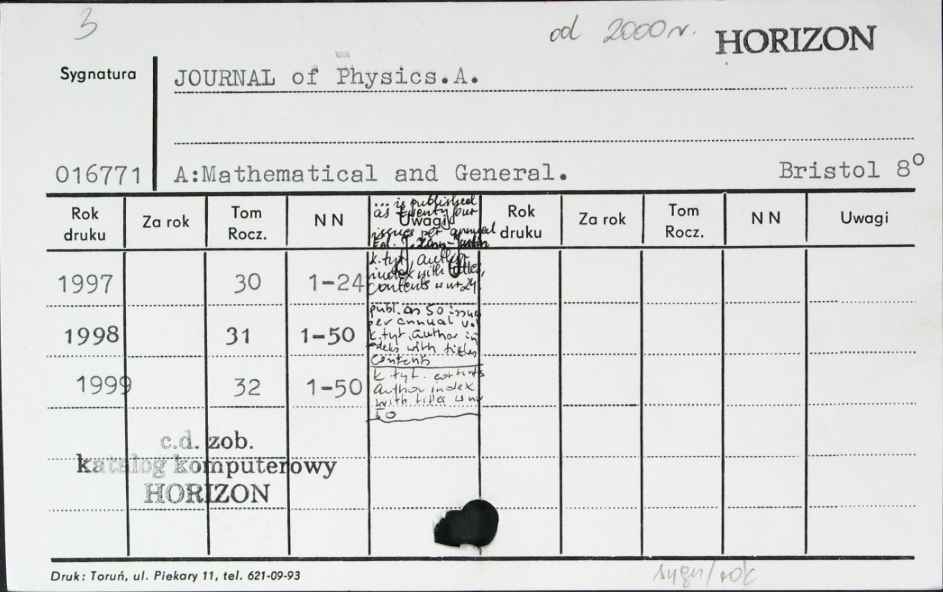 3
od 2000 r. HORIZON
Sygnatura
JOURNAL of Physics.A.
016771 A:Mathematical and General. Bristol 8°
Rok druku Za rok Tom Rocz. N N Uwagi Rok druku Za rok Tom Rocz. N N Uwagi
... is published
as twenty four
issues per annual
k.tyt, author
index with titles,
contents w nr 24
1997 30 1-24
publ. as 50 issue
per annual v.
k.tyt, author in
deks with titles
contents
1998 31 1-50
k tyt. contents
author index
with titles w nr
50
1999 32 1-50
c.d. zob.
katalog komputerowy
HORIZON
Druk: Toruń, ul. Piekary 11, tel. 621-09-93
sygn/rok